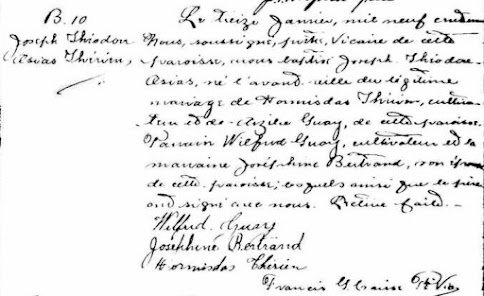 B. 10
Joseph Théodore
Osias Thérien,
Le treize Janvier, mil neuf cent
Nous, soussigné, ptre, Vicaire de cette
paroisse, avons baptisé Joseph Théodore
Osias, né l'avant-veille du légitime
mariage de Hormisdas Thérien, cultiva-
teur et de Guay, de cette paroisse.
Parrain Wilfrid Guay, cultivateur et la
marraine Joséphine Bertrand, son épouse
de cette paroisse; lesquels ainsi que le père
ont signé avec nous. Lecture faite. -
Wilfrid Guay
Joséphine Bertrand
Hormisdas Thérien
Francis Ptre Vic